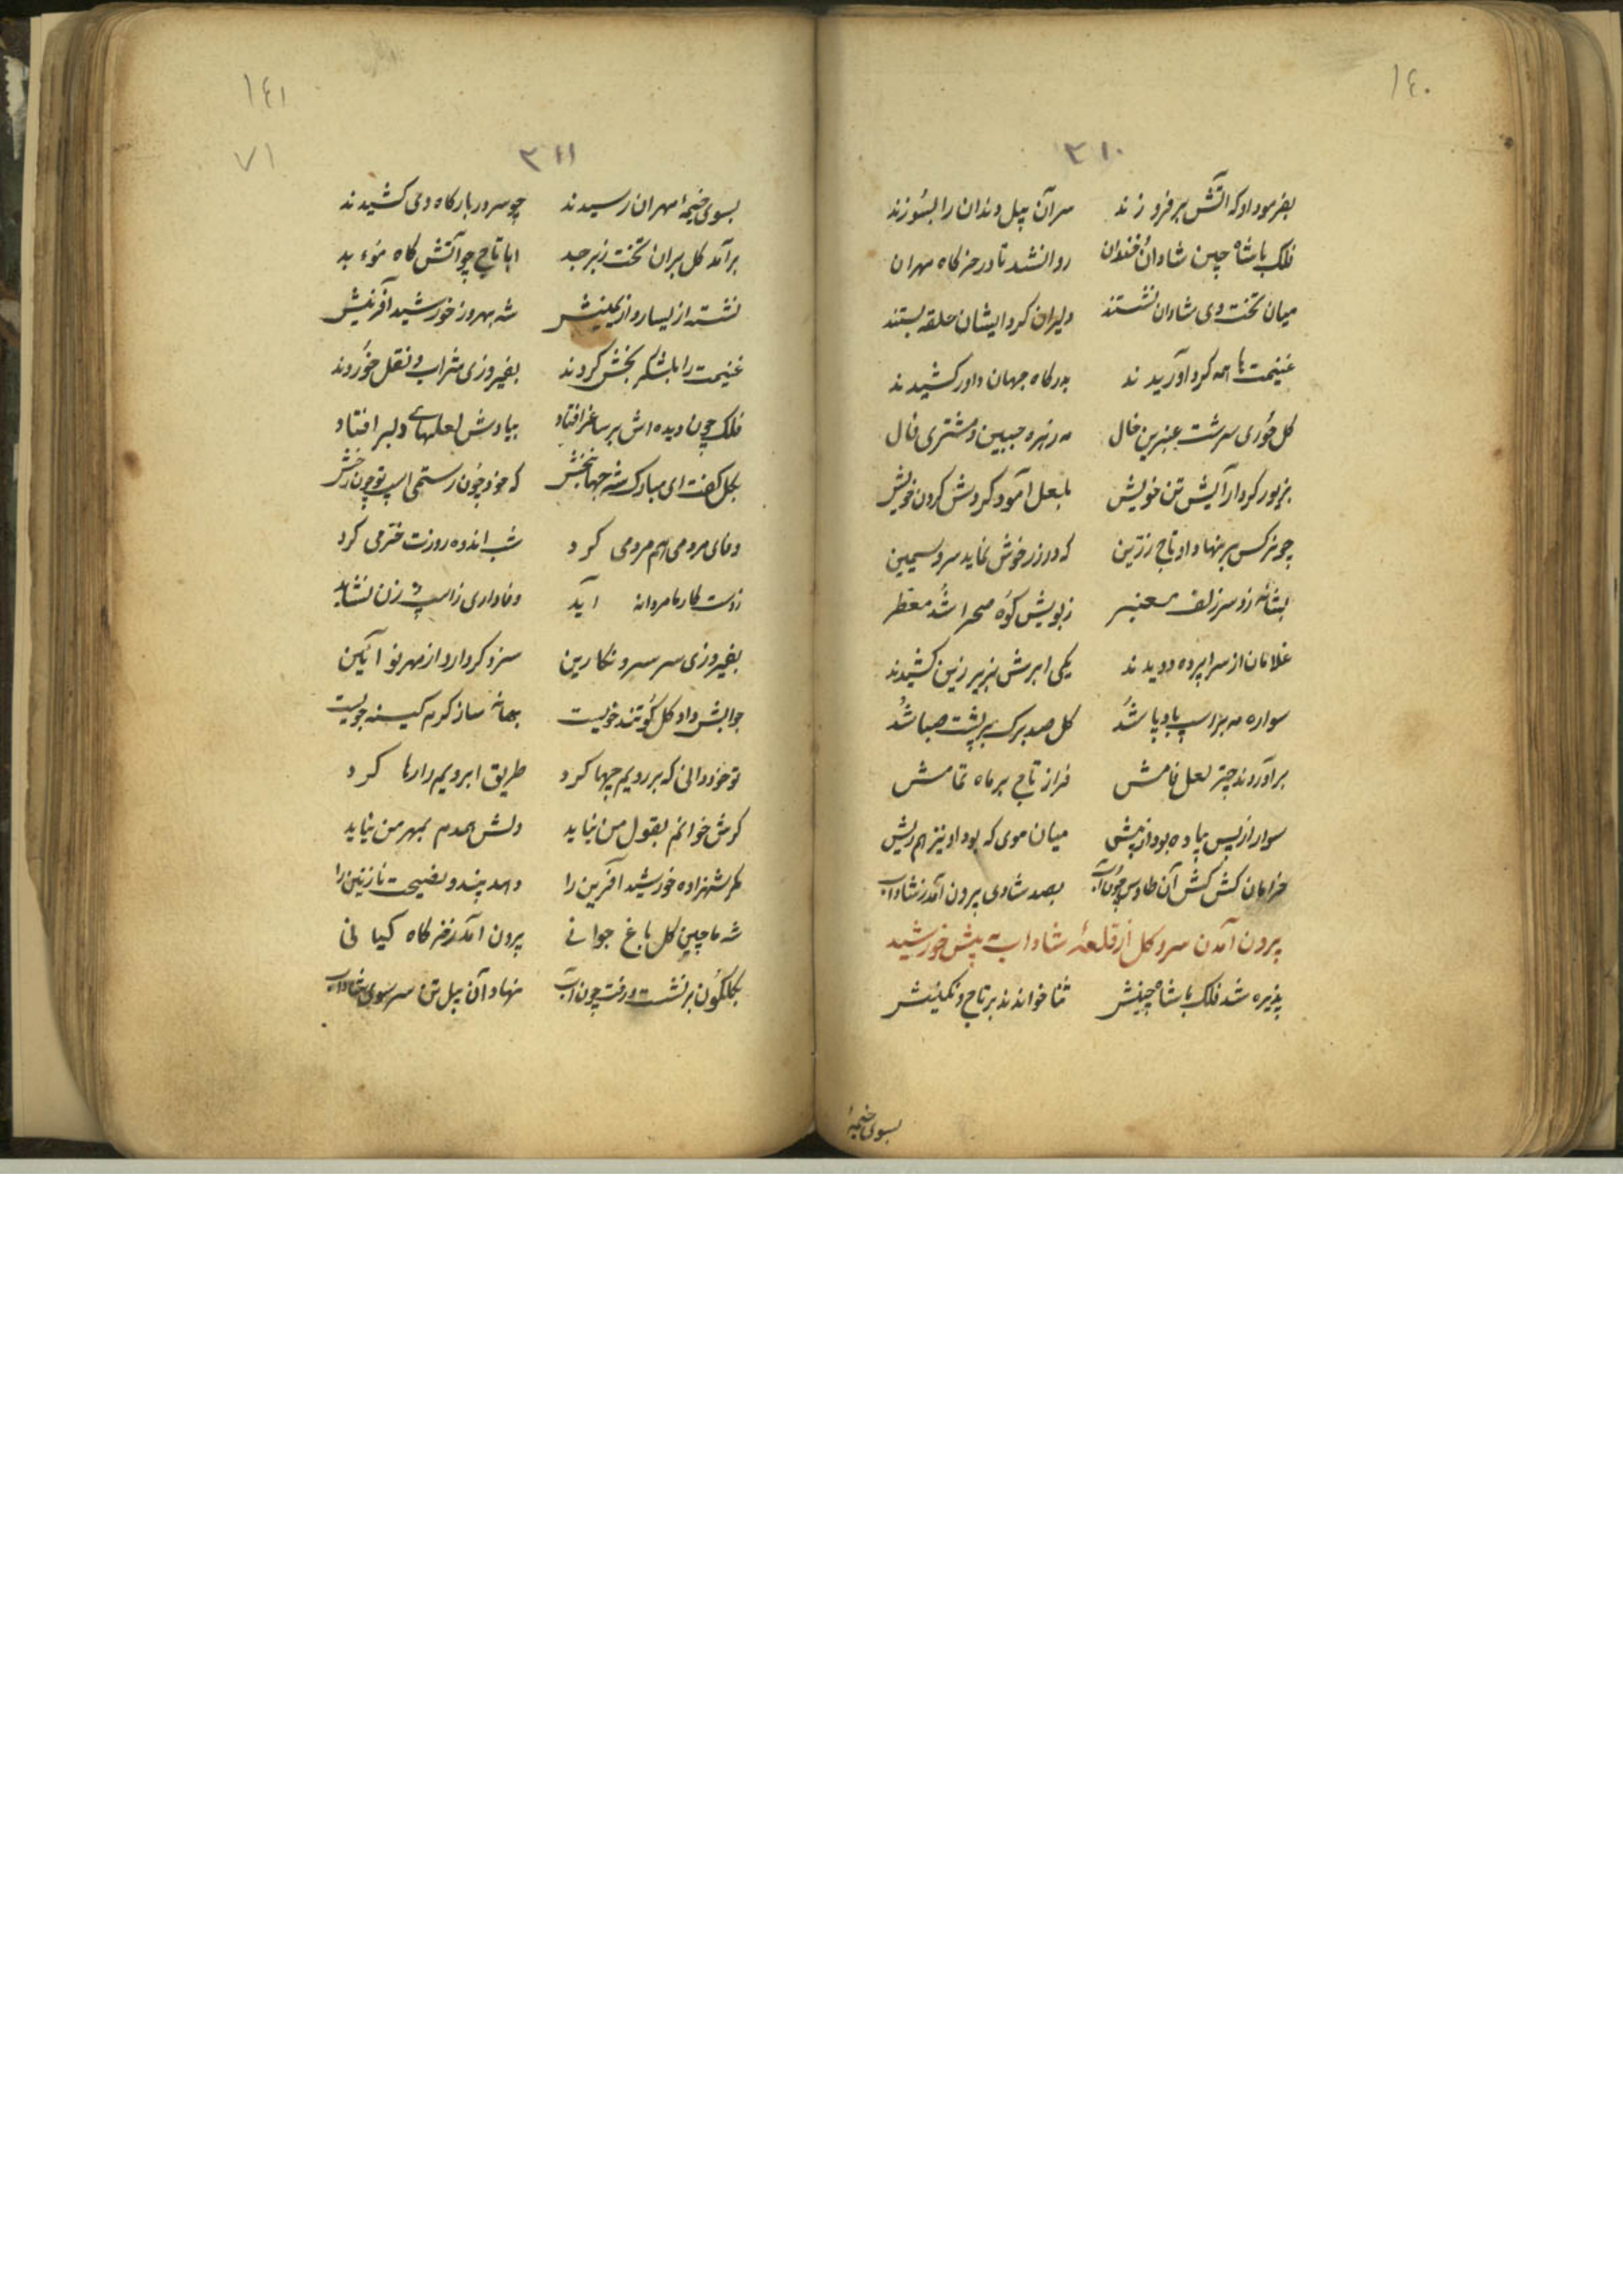 ١٤٠
٣١٠
بفرمود او که آتش بر فروزند سر آن پیل دندان را بسوزند
فلک با شاه چین شادان خندان روان شد تا در خرکاه مهران
میان تخت وی شادان نشستند دلیران کرد ایشان حلقه بستند
غنیمت ها همه کرد آوریدند بدرکاه جهان داور کشیدند
کل حوری سرشت عنبرین خال مه زهره جبین و مشتری فال
بزیور کرد آرایش تن خویش بلعل آمود کردش کردن خویش
چو نرکس بر نهاد او تاج زرین که در زر خوش نماید سرو سیمین
بشانه زد سر زلف معنبر ز بویش کوه صحرا شد معطر
غلامان از سراپرده دویدند یکی ابرش بزیر زین کشیدند
سواره مه بر اسپ بادپا شد کل صد برک بر پشت صبا شد
برآوردند چتر لعل فامش فراز تاج بر ماه تمامش
سوار از پس پیاده بود از پیش میان موی که بود او نیز هم ریش
خرامان کش کش آن طاوس چون آب بصد شادی برون آمد ز شاداب
برون آمدن سرو کل از قلعهٔ شاداب پیش خورشید
پذیره شد فلک با شاه چینش ثنا خواندند بر تاج و نکینش
بسوی خیمهٔ
١٤١
٧١
٣١١
بسوی خیمهٔ مهران رسیدند چو سر در بارکاه وی کشیدند
برآمد کل بران تخت زبرجد ابا تاج چو آتش کاه موبد
نشسته از یسار و از یمینش شه بهروز خورشید آفرینش
غنیمت را بلشکر بخش کردند بفیروزی شراب و نقل خوردند
فلک چون دیده اش بر ساغر افتاد بیادش لعلهای دلبر افتاد
بکل کفت ای مبارک شه جهانبخش که خود چون رستمی اسپ تو چون رخش
وفای مردمی هم مردمی کرد شب اندوه روزت خرمی کرد
ز دست کارها مردانه آید وفاداری ز اسپ و زن نشاید
بفیروزی سر سرو نکارین سزد کر دارد از مهر نو آئین
جوابش داد کل کو تند خویست بهانه ساز کرم کینه جویست
تو خود دانی که بر رویم چها کرد طریق ابرویم را رها کرد
کرش خوانم بقول من نیاید دلش همدم بمهر من نیاید
مکر شهزاده خورشید آفرین را دهد پند و نصیحت نازنین را
شه ماچین کل باغ جوانی برون آمد ز خرکاه کیانی
بکلکون برنشست و رفت چون آب نهاد آن پیل تن سر سوی شاداب